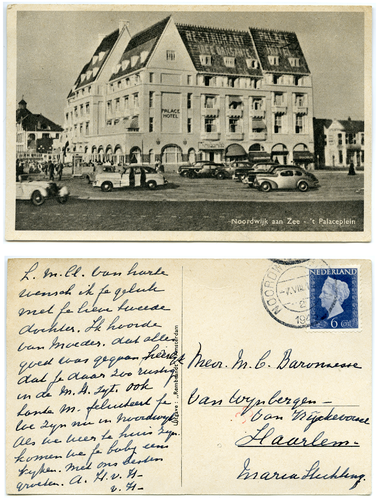 RESTAURANT
PALACE
HOTEL
Noordwijk aan Zee - 't Palaceplein
L. M. Cl. Van harte
wensch ik je geluk
met je lieve tweede
dochter. Ik hoorde
van Moeder, dat alles
goed was gegaan
dat je daar zoo rustig
in de M. St. ligt. Ook
M. feliciteert je
We zijn nu in Noordwijk
Als we weer thuis zijn
komen we je baby eens
kijken. Met ons beider
groeten. A. H. v. H-
v. H-
Uitgave: „Rembrandt" Amsterdam
NOORDW
VIII
NEDERLAND
6
Mevr. M. C. Baronesse
van Wijnbergen-
van
Haarlem-
Maria Stichting